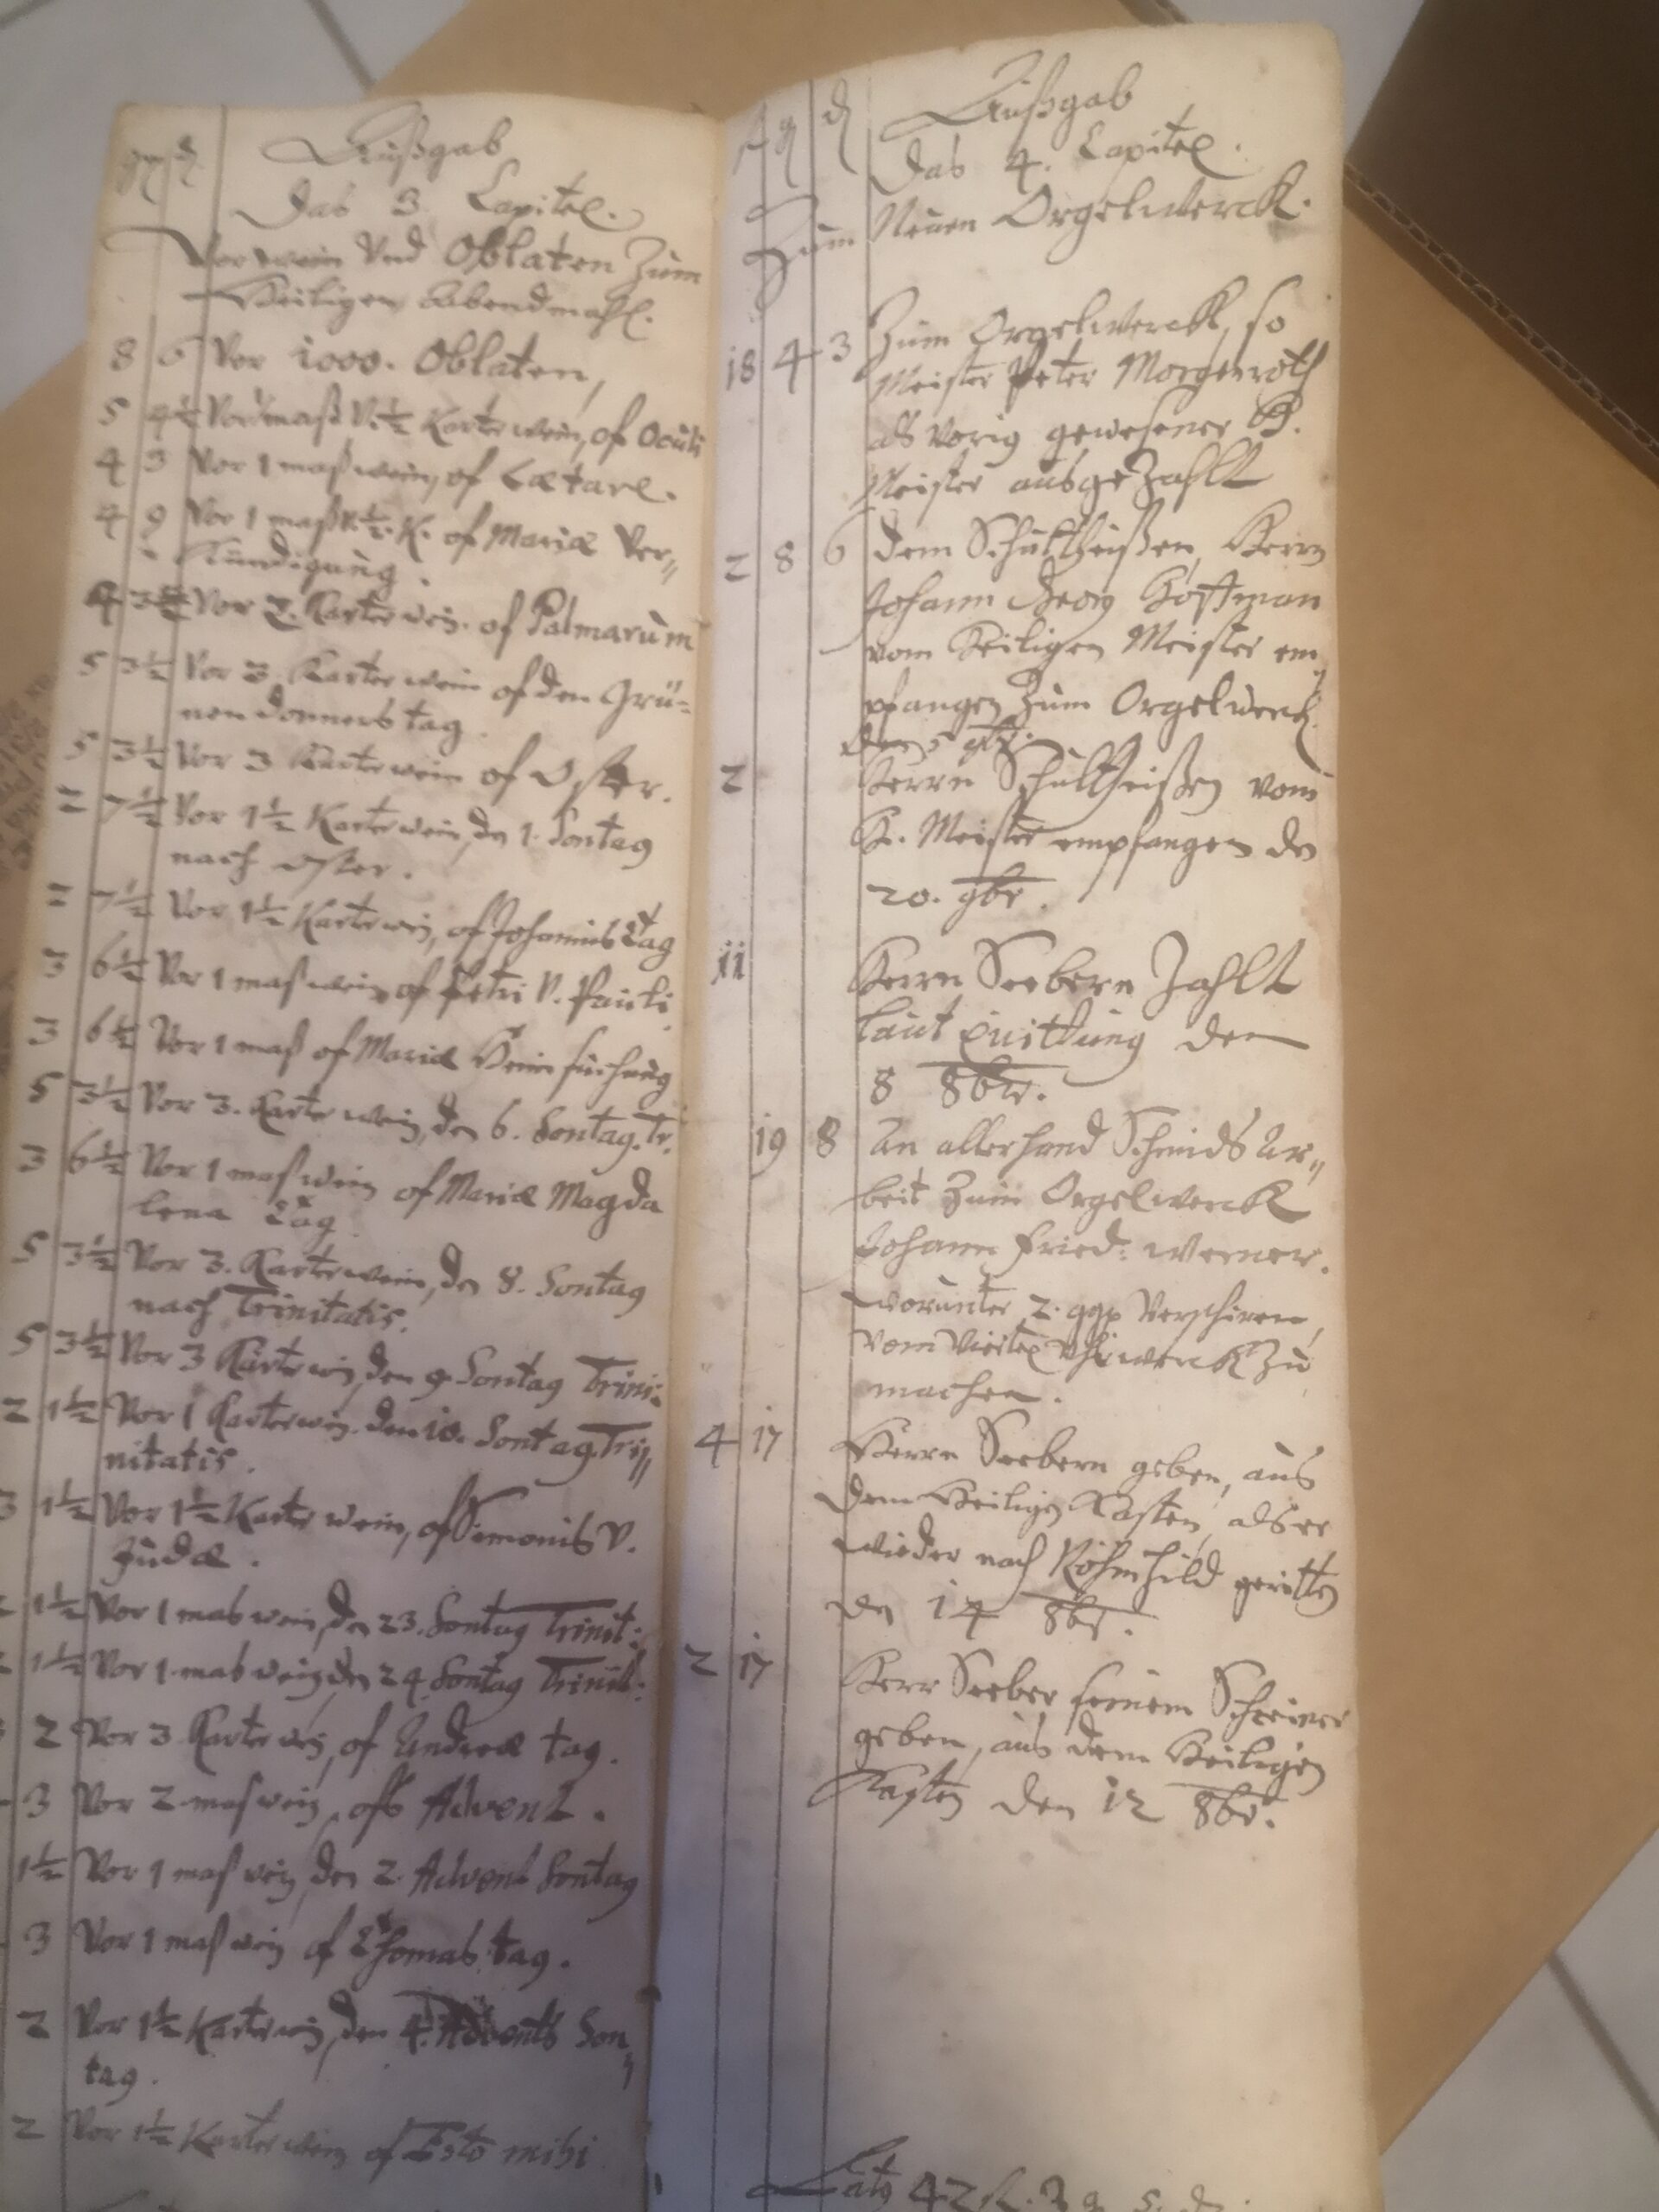 gr d
Außgab
Das 3. Capitel.
Vor wein Vnd Oblaten Zum
Heiligen Abendmahl.
8 6 Vor 1000. Oblaten,
5 4½ Vor 1 maß V. ½ Kart. wein, of Oculi
4 3 Vor 1 maß wein, of Lætare.
4 9 Vor 1 maß V. ½. K. of Mariæ Ver„
kündigung.
4 Vor 2. Karte wein. of Palmarum
5 3½ Vor 3. Karte wein of den Grü=
nen donnerstag.
5 3½ Vor 3 Karte wein of Oster.
2 7½ Vor 1½ Karte wein, den 1. Sontag
nach Oster.
2 7½ Vor 1½ Karte wein, of Johannis Tag
3 6½ Vor 1 maß wein of Petri V. Pauli
3 6½ Vor 1 maß of Mariæ Heimsuchung
5 3½ Vor 3. Karte wein, den 6. Sontag. Tr.
3 6½ Vor 1 maß wein of Mariæ Magda
lena Tag
5 3½ Vor 3. Karte wein, den 8. Sontag
nach Trinitatis.
5 3½ Vor 3 Karte wein, den 9. Sontag Trini:
2 1½ Vor 1 Karte wein. den 10. Sontag Tri„
nitatis.
3 1½ Vor 1½ Karte wein, of Simonis V.
Judæ.
1½ Vor 1 mas wein, den 23. Sontag Trinit:
1½ Vor 1 mas wein, den 24. Sontag Trinit:
2 Vor 3 Karte wein, of Andreæ tag.
3 Vor 2 mas wein, ofs Advent.
1½ Vor 1 maß wein, den 2. Advent Sontag
3 Vor 1 maß wein of Thomas tag.
2 Vor 1½ Karte wein, den 4. Advents Son„
tag.
2 Vor 1½ Karte wein of Esto mihi
fl g d
Außgab
Das 4. Capitel.
Zum Neuen Orgelwerck.
18 4 3 Zum Orgelwerck, so
Meister Peter Morgenroth
als vorig gewesener H.
Meister ausgezahlt
2 8 6 dem Schultheißen, Herrn
Johann Georg Hoffman
vom Heiligen Meister em„
pfangen zum Orgelwerck.
den 5
2 Herrn Schultheißen vom
H. Meister empfangen den
20. 9br.
11 Herrn Seebern Zahlt
laut Quittung den
8 8br.
19 8 An allerhand Schmids Ar„
beit zum Orgelwerck
Johann Fried: Werner.
worunter 2. ggl
vom Viertel Uhrwerck zu
machen.
4 17 Herrn Seebern geben, aus
dem Heiligen Kasten, als er
wieder nach Römhild geritten
den 14 8br.
2 17 Herr Seeber seinem Schreiner
geben, aus dem Heiligen
Kasten den 12 8br.
Latus 42 fl. 3 g. 5. d.